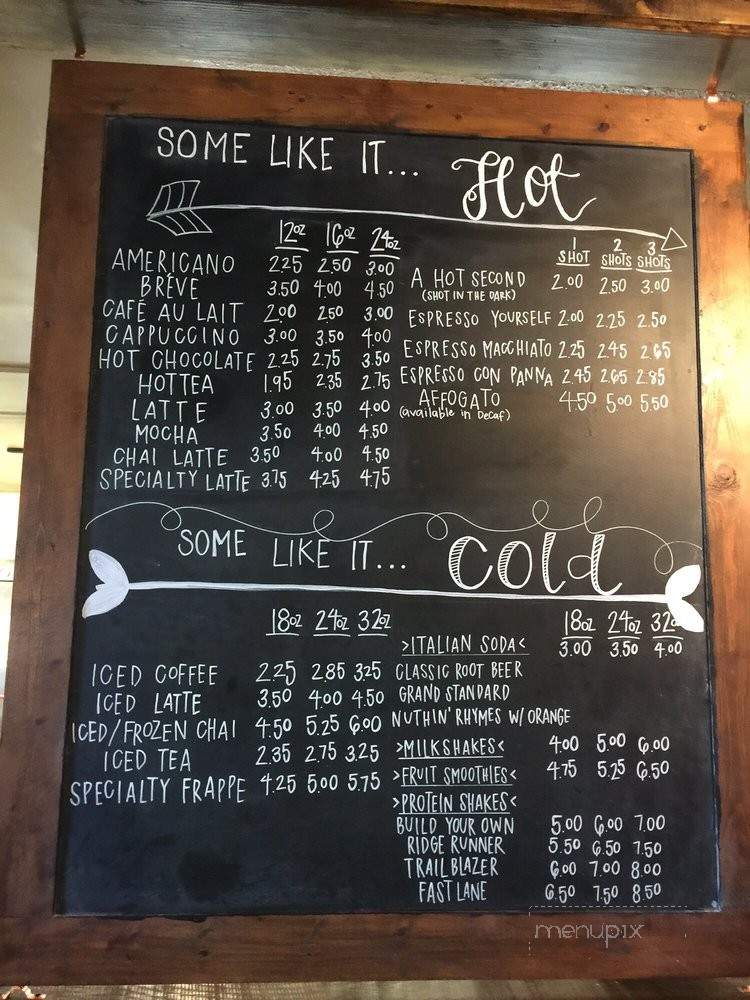 SOME LIKE IT... Hot
12oz 16oz 24oz
AMERICANO 2.25 2.50 3.00
BRÉVE 3.50 4.00 4.50
CAFÉ AU LAIT 2.00 2.50 3.00
CAPPUCCINO 3.00 3.50 4.00
HOT CHOCOLATE 2.25 2.75 3.50
HOT TEA 1.95 2.35 2.75
LATTE 3.00 3.50 4.00
MOCHA 3.50 4.00 4.50
CHAI LATTE 3.50 4.00 4.50
SPECIALTY LATTE 3.75 4.25 4.75
1 SHOT 2 SHOTS 3 SHOTS
A HOT SECOND 2.00 2.50 3.00
(SHOT IN THE DARK)
ESPRESSO YOURSELF 2.00 2.25 2.50
ESPRESSO MACCHIATO 2.25 2.45 2.65
ESPRESSO CON PANNA 2.45 2.65 2.85
AFFOGATO 4.50 5.00 5.50
(available in Decaf)
SOME LIKE IT... Cold
18oz 24oz 32oz
ICED COFFEE 2.25 2.85 3.25
ICED LATTE 3.50 4.00 4.50
ICED/FROZEN CHAI 4.50 5.25 6.00
ICED TEA 2.35 2.75 3.25
SPECIALTY FRAPPE 4.25 5.00 5.75
18oz 24oz 32oz
>ITALIAN SODA< 3.00 3.50 4.00
CLASSIC ROOT BEER
GRAND STANDARD
NUTHIN' RHYMES W/ ORANGE
>MILKSHAKES< 4.00 5.00 6.00
>FRUIT SMOOTHIES< 4.75 5.25 6.50
>PROTEIN SHAKES<
BUILD YOUR OWN 5.00 6.00 7.00
RIDGE RUNNER 5.50 6.50 7.50
TRAIL BLAZER 6.00 7.00 8.00
FAST LANE 6.50 7.50 8.50
menupix